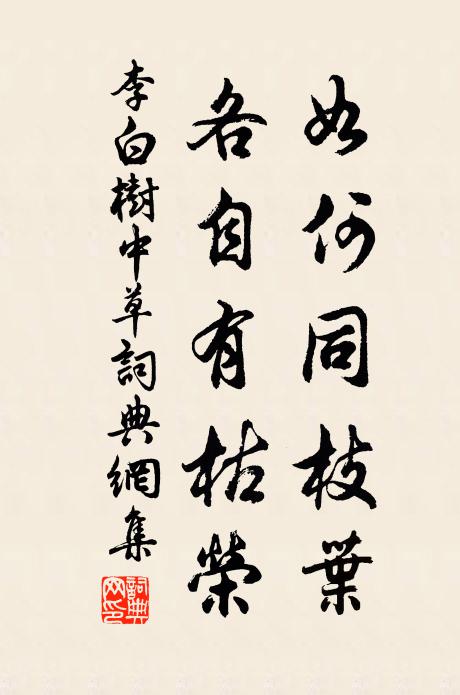 如何同枝葉
各自有枯榮
李白樹中草詞典網集
詞典網印